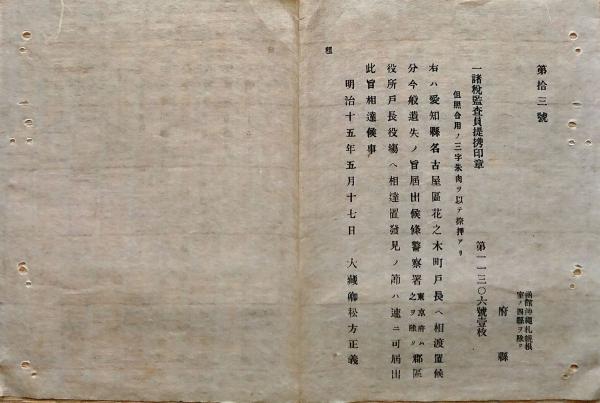 第拾三號
函館沖繩札幌根
室ノ四縣ヲ除ク
府縣
一諸税監査員提携印章 第一一三〇六號壹枚
但照合用ノ三字朱肉ヲ以テ捺押アリ
右ハ愛知縣名古屋區花之木町戸長ヘ相渡置候
分今般遺失ノ旨届出候條警察署東京府ハ之ヲ除ク郡區
役所戸長役場ヘ相達置發見ノ節ハ速ニ可届出
此旨相達候事
明治十五年五月十七日 大藏卿松方正義
租